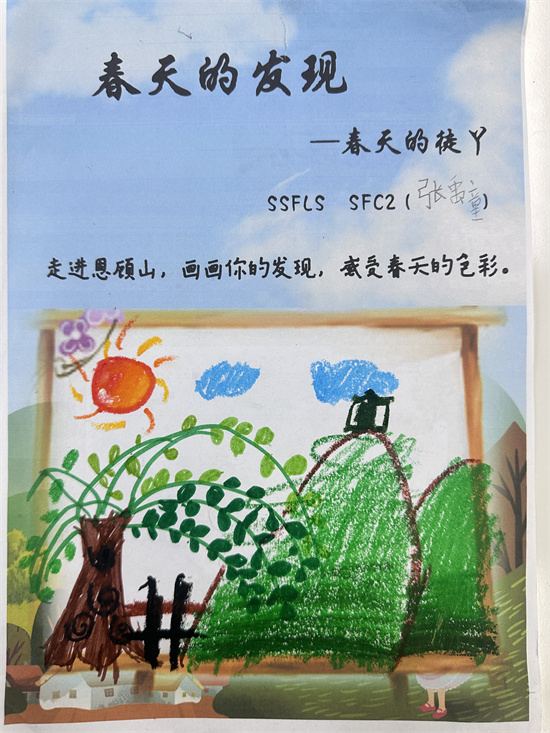 春天的发现
—春天的徒丫
SSFLS SFC2(张禹童)
走进恩顾山，画画你的发现，感受春天的色彩。